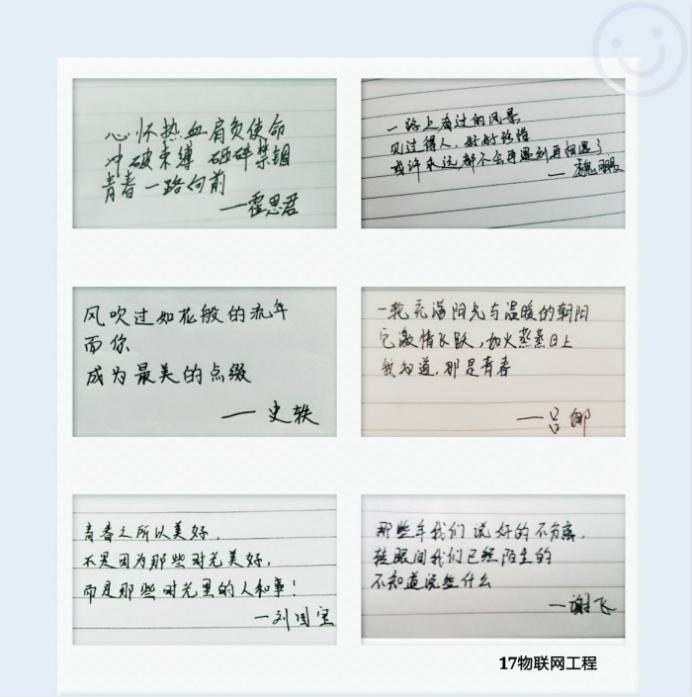 心怀热血肩负使命
冲破束缚 砸碎禁锢
青春一路向前
一霍思君
一路上看过的风景
见过得人，好好珍惜
或许永远都不会再遇到再相遇了
一魏鹏
风吹过如花般的流年
而你
成为最美的点缀
一史轶
一轮充满阳光与温暖的朝阳
它激情飞跃，如火蒸蒸日上
我知道，那是青春
一吕
青春之所以美好，
不是因为那些时光美好，
而是那些时光里的人和事！
一刘国
那些年我们说好的不分离，
转眼间我们已经陌生的
不知道说些什么
一谢飞
17物联网工程